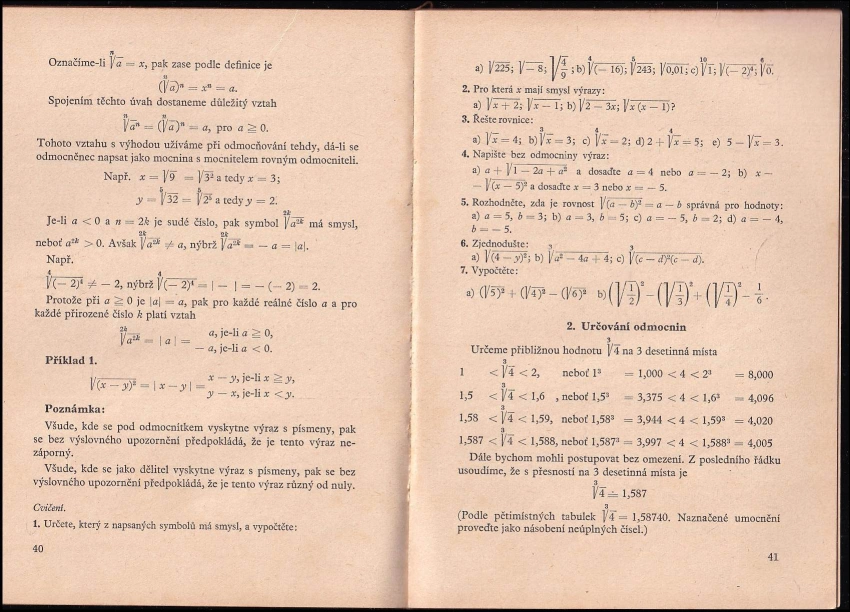 Označíme-li ⁿ√a = x, pak zase podle definice je
(ⁿ√a)ⁿ = xⁿ = a.
Spojením těchto úvah dostaneme důležitý vztah
ⁿ√aⁿ = (ⁿ√a)ⁿ = a, pro a ≧ 0.
Tohoto vztahu s výhodou užíváme při odmocňování tehdy, dá-li se
odmocněnec napsat jako mocnina s mocnitelem rovným odmocniteli.
Např. x = √9 = √3² a tedy x = 3;
y = ⁵√32 = ⁵√2⁵ a tedy y = 2.
Je-li a < 0 a n = 2k je sudé číslo, pak symbol ²ᵏ√a²ᵏ má smysl,
neboť a²ᵏ > 0. Avšak ²ᵏ√a²ᵏ ≠ a, nýbrž ²ᵏ√a²ᵏ = − a = |a|.
Např.
⁴√(− 2)⁴ ≠ − 2, nýbrž ⁴√(− 2)⁴ = | − | = − (− 2) = 2.
Protože při a ≧ 0 je |a| = a, pak pro každé reálné číslo a a pro
každé přirozené číslo k platí vztah
²ᵏ√a²ᵏ = | a | = a, je-li a ≧ 0,
− a, je-li a < 0.
Příklad 1.
√(x − y)² = | x − y | = x − y, je-li x ≧ y,
y − x, je-li x < y.
Poznámka:
Všude, kde se pod odmocnítkem vyskytne výraz s písmeny, pak
se bez výslovného upozornění předpokládá, že je tento výraz ne-
záporný.
Všude, kde se jako dělitel vyskytne výraz s písmeny, pak se bez
výslovného upozornění předpokládá, že je tento výraz různý od nuly.
Cvičení.
1. Určete, který z napsaných symbolů má smysl, a vypočtěte:
40
a) √225; √− 8; √4/9; b) ⁴√(− 16); ⁵√243; √0,01; c) ¹⁰√1; √(− 2)⁴; ⁶√0.
2. Pro která x mají smysl výrazy:
a) √x + 2; √x − 1; b) √2 − 3x; √x (x − 1)?
3. Řešte rovnice:
a) √x = 4; b) ³√x = 3; c) ⁴√x = 2; d) 2 + ⁴√x = 5; e) 5 − √x = 3.
4. Napište bez odmocniny výraz:
a) a + √1 − 2a + a² a dosaďte a = 4 nebo a = − 2; b) x −
− √(x − 5)² a dosaďte x = 3 nebo x = − 5.
5. Rozhodněte, zda je rovnost √(a − b)² = a − b správná pro hodnoty:
a) a = 5, b = 3; b) a = 3, b = 5; c) a = − 5, b = 2; d) a = − 4,
b = − 5.
6. Zjednodušte:
a) √(4 − y)²; b) ³√a² − 4a + 4; c) ³√(c − d)²(c − d).
7. Vypočtěte:
a) (√5)² + (√4)² − (√6)² b) (√1/2)² − (√1/3)² + (√1/4)² − 1/6.
2. Určování odmocnin
Určeme přibližnou hodnotu ³√4 na 3 desetinná místa
1 < ³√4 < 2, neboť 1³ = 1,000 < 4 < 2³ = 8,000
1,5 < ³√4 < 1,6 , neboť 1,5³ = 3,375 < 4 < 1,6³ = 4,096
1,58 < ³√4 < 1,59, neboť 1,58³ = 3,944 < 4 < 1,59³ = 4,020
1,587 < ³√4 < 1,588, neboť 1,587³ = 3,997 < 4 < 1,588³ = 4,005
Dále bychom mohli postupovat bez omezení. Z posledního řádku
usoudíme, že s přesností na 3 desetinná místa je
³√4 ≐ 1,587
(Podle pětimístných tabulek ³√4 = 1,58740. Naznačené umocnění
proveďte jako násobení neúplných čísel.)
41